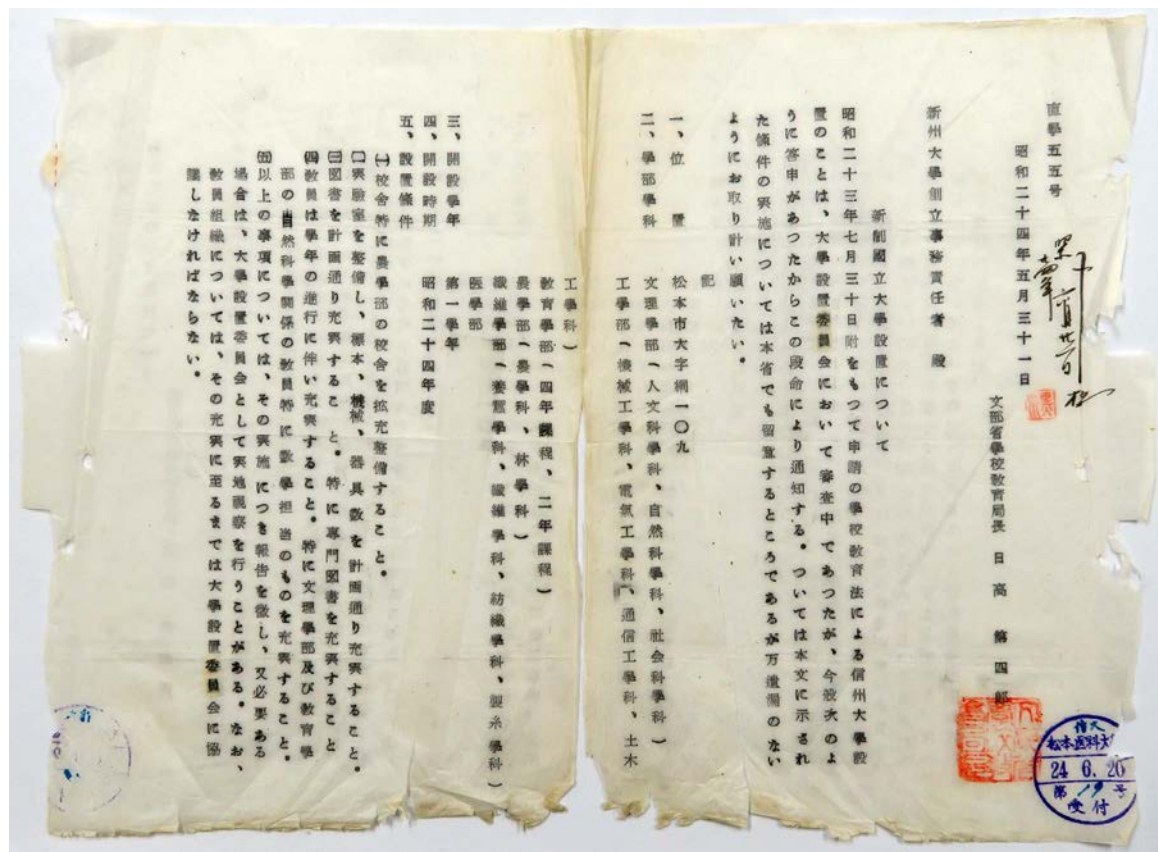 直學五五号
昭和二十四年五月三十一日
文部省學校教育局長 日高 第四郎
新州大學創立事務責任者 殿
新制國立大學設置について
昭和二十三年七月三十日附をもつて申請の學校教育法による信州大學設
置のことは、大學設置委員会において審査中であつたが、今般次のよ
うに答申があつたからこの段命により通知する。ついては本文に示され
た條件の実施については本省でも留意するところであるが万遺漏のない
ようにお取り計い願いたい。
記
一、位置 松本市大字桐一〇九
二、學部學科 文理學部(人文科學科、自然科學科、社会科學科)
工學部(機械工學科、電氣工學科、通信工學科、土木
工學科)
教育學部(四年課程、二年課程)
農學部(農學科、林學科)
纖維學部(養蚕學科、纖維學科、紡織學科、製糸學科)
医學部
三、開設學年 第一學年
四、開設時期 昭和二十四年度
五、設置條件
(一)校舎特に農學部の校舎を拡充整備すること。
(二)実驗室を整備し、標本、機械、器具数を計画通り充実すること。
(三)図書を計画通り充実すること。特に専門図書を充実すること
(四)教員は學年の進行に伴い充実すること。特に文理學部及び教育學
部の自然科學関係の教員特に数學担当のものを充実すること。
(五)以上の事項については、その実施につき報告を徴し、又必要ある
場合は、大學設置委員会として実地視察を行うことがある。なお、
教員組織については、その充実に至るまでは大學設置委員会に協
議しなければならない。
信大
松本医科大
24 6. 20
第19号
受付